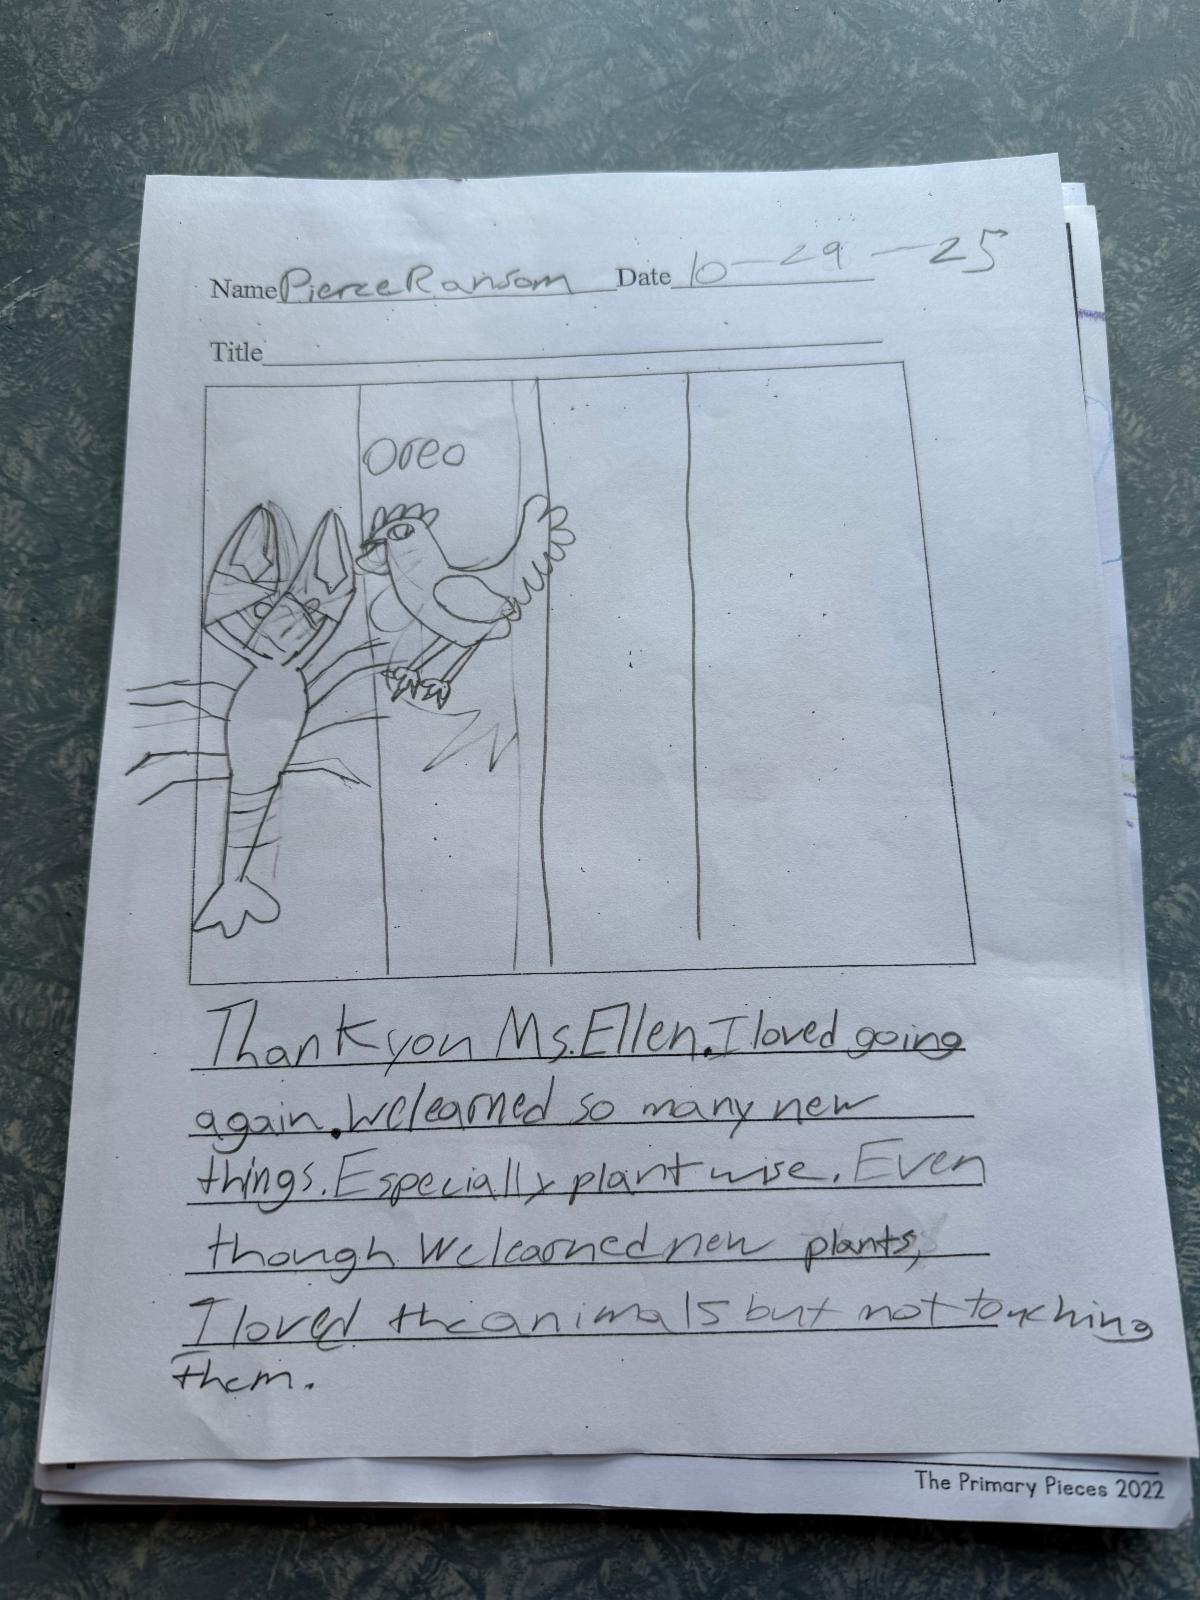 Name Pierce Ransom Date 10-29-25
Title
Oreo
Thank you Ms. Ellen. I loved going
again. We learned so many new
things. Especially plant wise. Even
though we learned new plants,
I loved the animals but not touching
them.
The Primary Pieces 2022